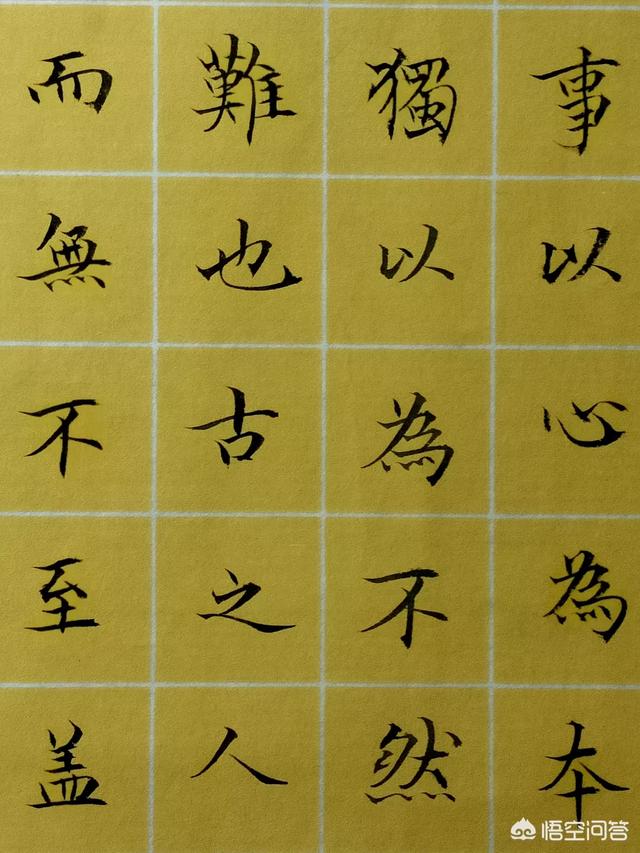 事以心為本
獨以為不然
難也古之人
而無不至盖
悟空问答